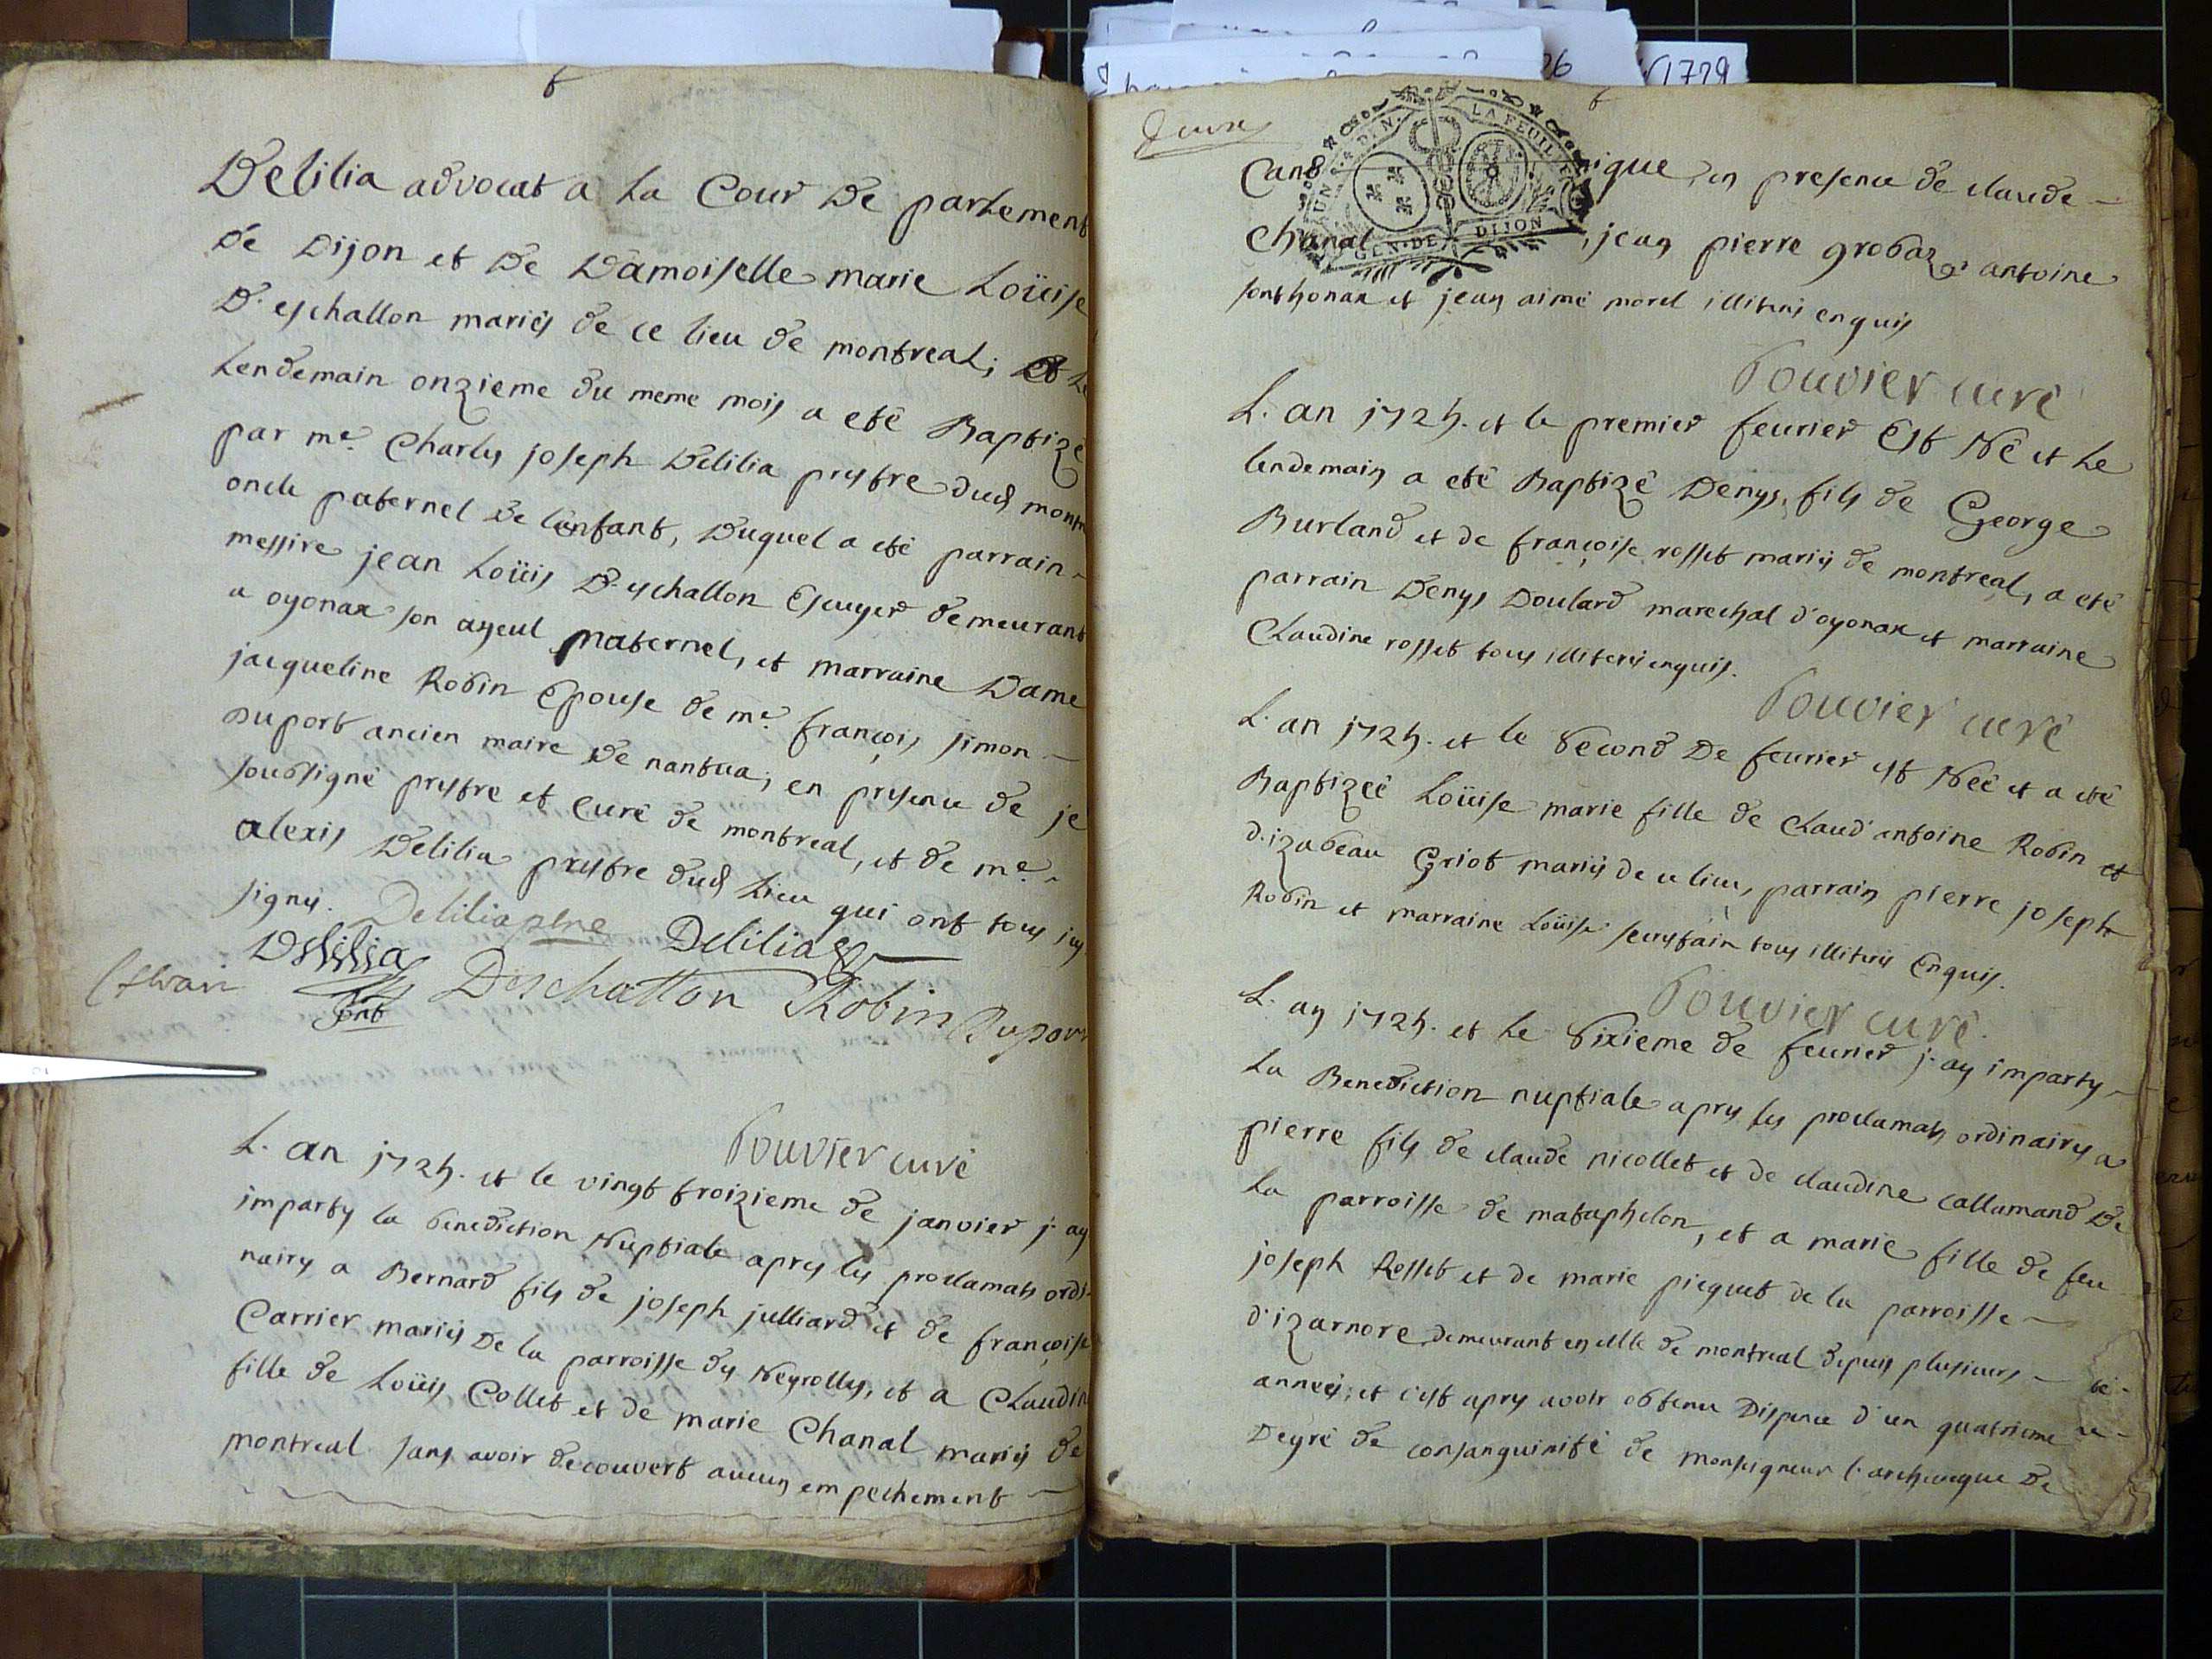 Delilia advocat a La Cour De parlement
de Dijon et De Damoiselle marie Loüise
D'eschallon mariés de ce lieu de montreal; et Le
Lendemain onzieme du meme mois a eté Baptizé
par me. Charles joseph Delilia prestre dud montr
oncle paternel De lenfant, Duquel a eté parrain
messire jean Loüis D'eschallon Escuyer demeurant
a oyonax son ayeul maternel, et marraine Dame
jacqueline Robin Epouse de me. françois simon
Duport ancien maire De nantua; en presence de je
soubsigné prestre et Curé de montreal, et de me.
alexis Delilia prestre dud Lieu qui ont tous
signé. Delilia ptre Delilia
Delilia Deschallon Robin Duport
Pouvier curé
L'an 1725. et le vingt troizieme de janvier j'ay
imparty la benediction Nuptiale apres les proclamats ordi-
naires a Bernard fils de joseph julliard et de françoise
Carrier mariés De la parroisse des Neyrolles, et a Claudin
fille de Loüis Collet et de marie Chanal mariés de
montreal sans avoir decouvert aucun empechement
6
Cano nique, en presence de claude
Chanal, jean pierre grobaz, antoine
sonthonax et jean aimé morel illiterés enquis
Pouvier curé
L'an 1725. et le premier feurier Est Né et Le
lendemain a eté Baptizé Denys, fils de George
Burland et de françoise rosset mariés de montreal, a eté
parrain Denys Doulard marechal d'oyonax et marraine
Claudine rosset tous illiterés enquis.
Pouvier curé
L'an 1725. et le second De feurier est Neé et a eté
Baptizeé Loüise marie fille de Claud'antoine Robin et
d'izabeau Griot mariés de ce lieu, parrain pierre joseph
Robin et marraine Loüise tous illiterés Enquis.
Pouvier curé.
L'an 1725. et Le sixieme de feurier j'ay imparty
La Benediction nuptiale apres les proclamats ordinaires a
pierre fils de claude nicollet et de claudine callamand De
La parroisse de mataphelon, et a marie fille de feu
joseph Rosset et de marie picquet de la parroisse
d'izarnore demeurant en celle de montreal depuis plusieurs
anneés; et c'est apres avoir obtenu Dispence d'un quatrieme
Degré de consanguinité de monseigneur l'archeveque De
LA FEUILLE
GEN·DE DIJON
1729
26